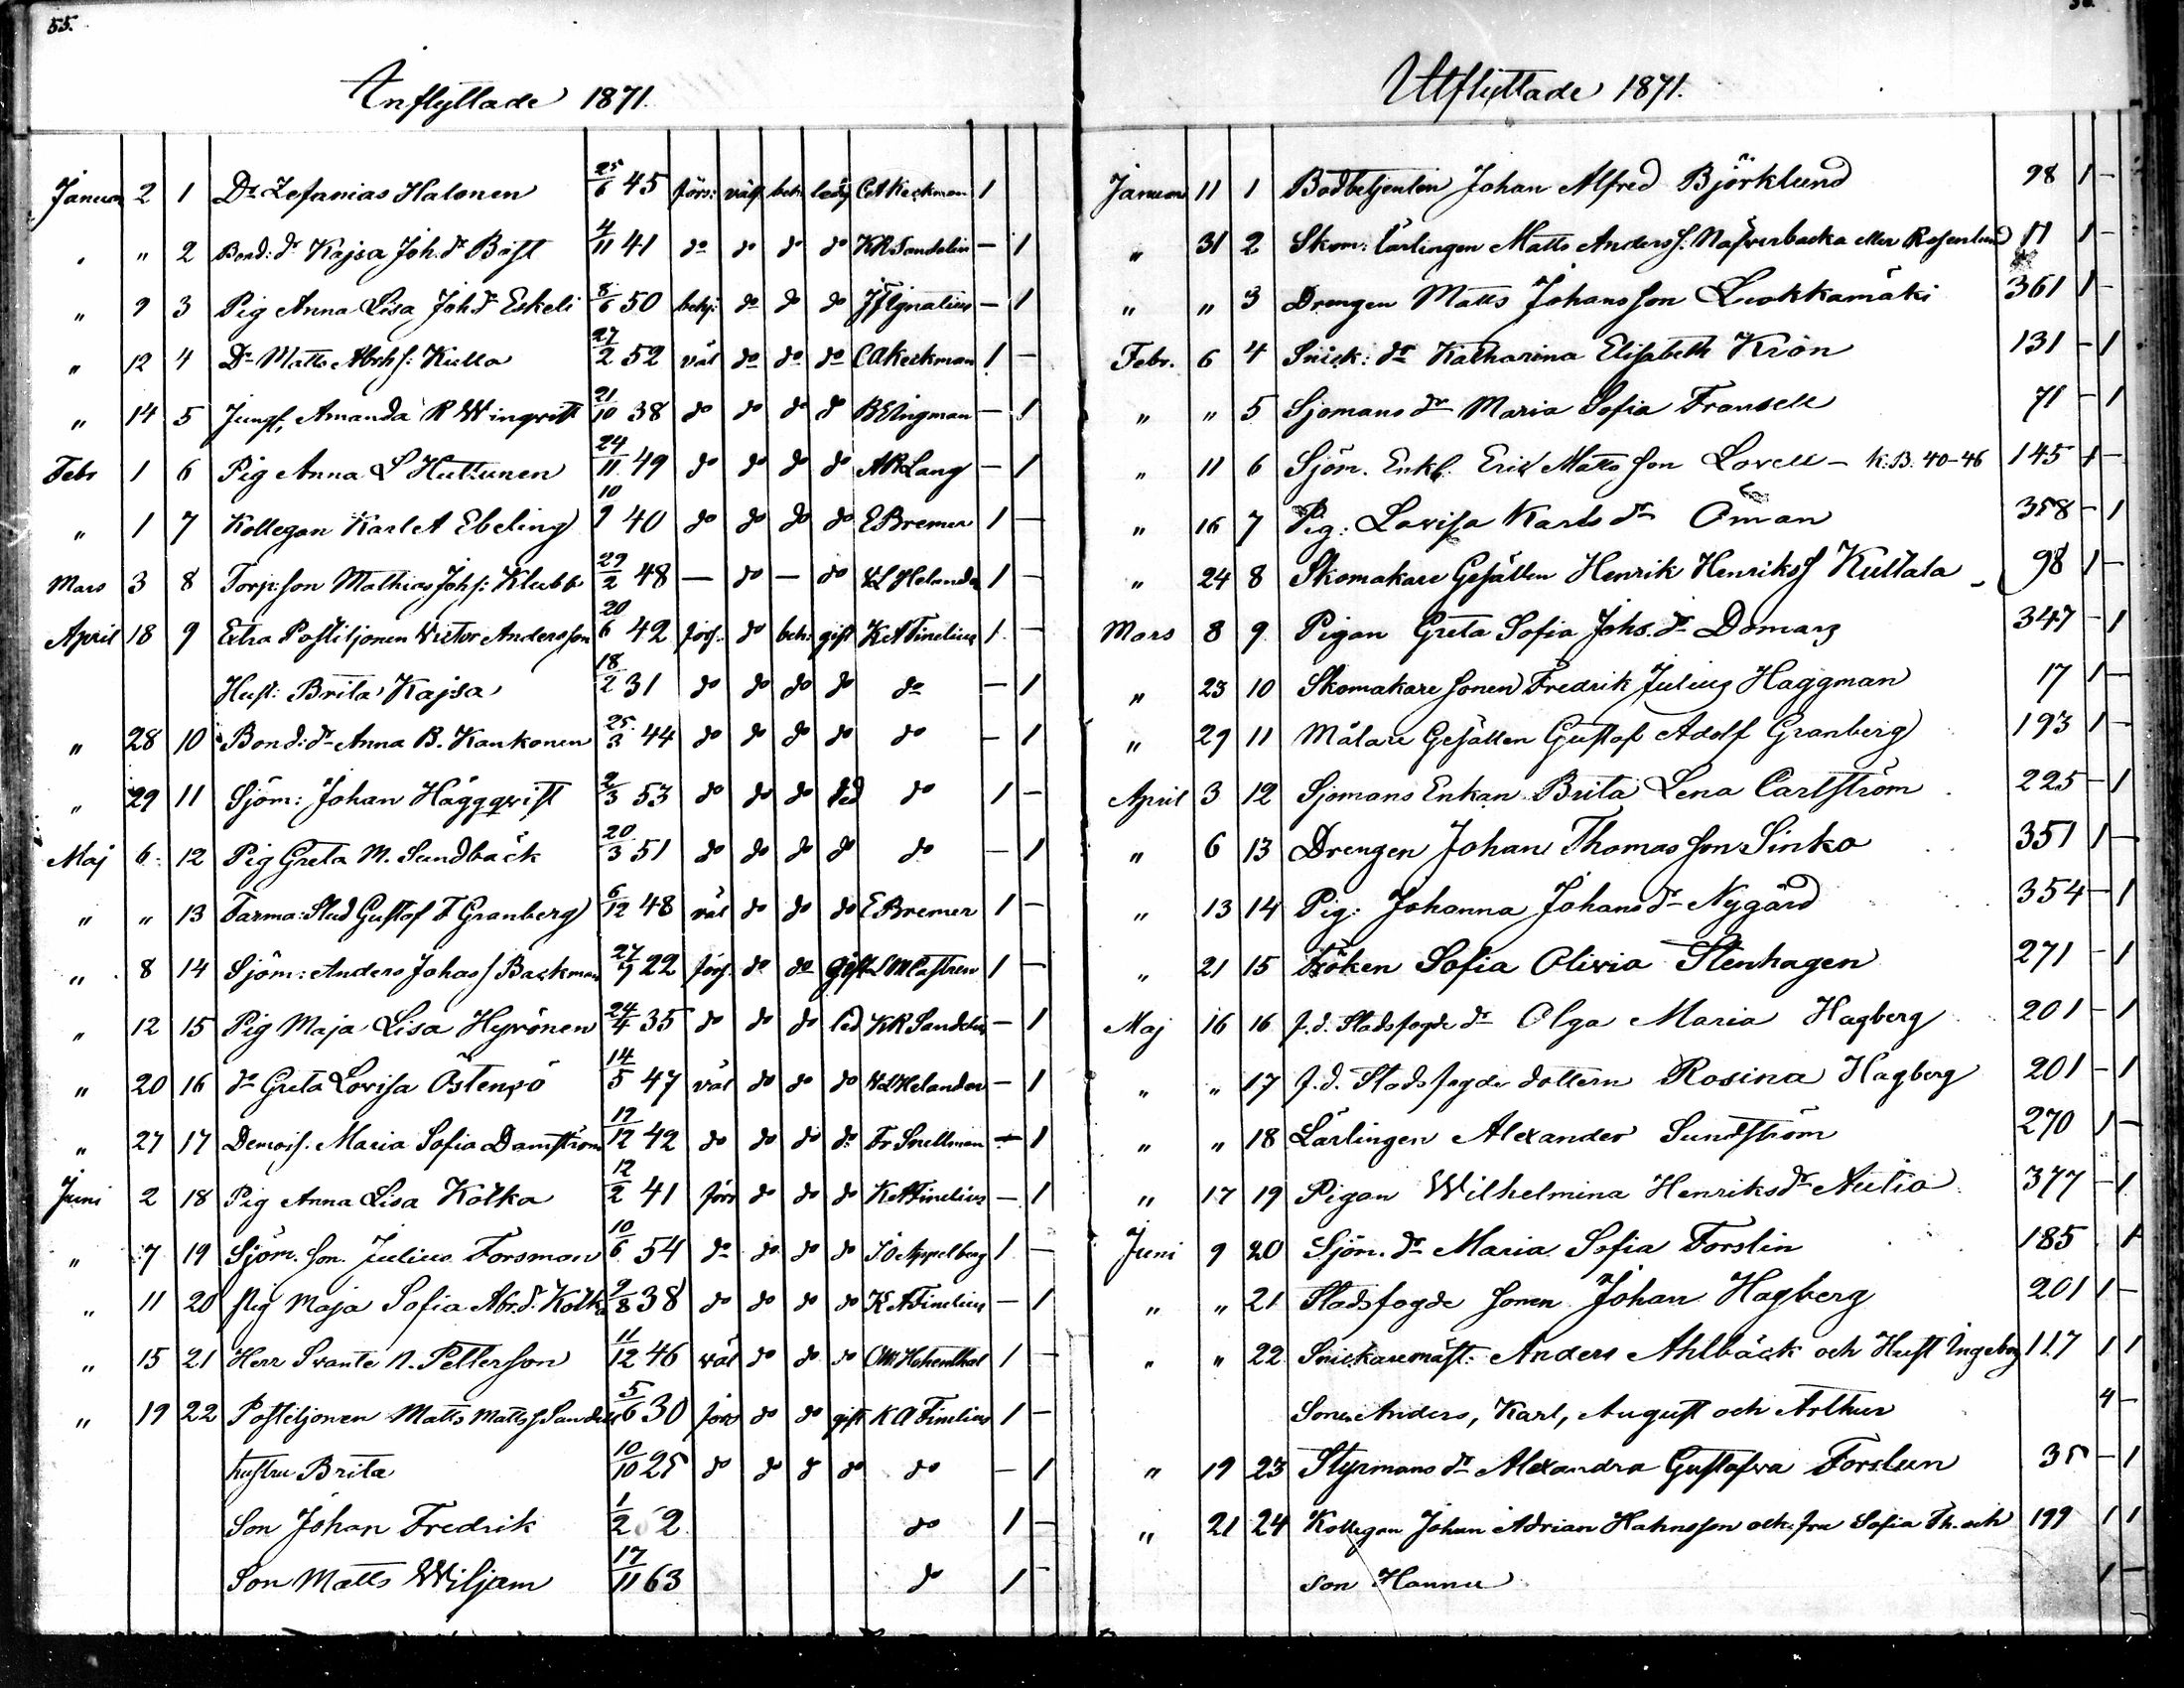 55.
Inflyttade 1871.
Januari 2 1 Dr Zefanias Halonen 25/6 45 förs: väl beh: ledig CAKeckman 1
" " 2 Bond: dr Kajsa Joh. dr Båst 4/11 41 do do do do KRSandelin — 1
" 9 3 Pig Anna Lisa Joh dr Eskeli 8/6 50 behj: do do do JFIgnatius — 1
" 12 4 Dr Matts Abrhs: Kulla 27/2 52 väl do do do CAKeckman 1 —
" 14 5 Jungf, Amanda R Winqvist 21/10 38 do do do do BEIngman — 1
Febr 1 6 Pig Anna L Huttunen 24/11 49 do do do do ARLang — 1
" 1 7 Kollegan Karl A Ebeling 10/9 40 do do do do EBremer 1 —
Mars 3 8 Torp: son Mathias Johs: Klubb 29/2 48 — do — do Helander 1 —
April 18 9 Extra Postiljonen Victor Andersson 20/6 42 förs. do beh: gift KAFinelius 1 —
Hust: Brita Kajsa 18/2 31 do do do do do — 1
" 28 10 Bond: dr Anna B. Kankonen 25/3 44 do do do do do — 1
" 29 11 Sjöm: Johan Häggqvist 2/3 53 do do do led do 1 —
Maj 6 12 Pig Greta M. Sundbäck 20/3 51 do do do do do — 1
" " 13 Farma: Stud Gustaf F Granberg 6/12 48 väl do do do EBremer 1 —
" 8 14 Sjöm: Anders Johas Backman 27/9 22 förs. do do Gift Castren 1 —
" 12 15 Pig Maja Lisa Hyvönen 24/4 35 do do do led KRSandelin — 1
" 20 16 do Greta Lovisa Östensö 14/5 47 väl do do do Helander — 1
" 27 17 Demois. Maria Sofia Damström 17/12 42 do do do do Fr Snellman — 1
Juni 2 18 Pig Anna Lisa Kotka 12/2 41 förs do do do KAFinelius — 1
" 7 19 Sjöm. son. Julius Forsman 10/6 54 do do do do Appelberg 1 —
" 11 20 Pig Maja Sofia Abr. d. Kotka 9/8 38 do do do do KAFinelius — 1
" 15 21 Herr Svante A. Petterson 11/12 46 väl do do do Hohenthal 1 —
" 19 22 Postiljonen Matts Mattss Sandell 5/6 30 förs do do gift KAFinelius 1 —
hustru Brita 10/10 25 do do do do do — 1
Son Johan Fredrik 1/2 62 do 1 —
Son Matts Wiljam 17/11 63 do 1 —
Utflyttade 1871.
Januari 11 1 Bodbetjenten Johan Alfred Björklund 98 1 —
" 31 2 Skom: lärlingen Matts Anderss: Näsverbacka eller Rosenlund 11 1 —
" " 3 Drengen Matts Johansson Luokkamäki 361 1 —
Febr. 6 4 Snick: dr Katharina Elisabeth Krön 131 — 1
" " 5 Sjömans dr Maria Sofia Fransell 71 — 1
" 11 6 Sjöm. Enkl. Erik Matts son Lovell — K.B. 40-46 145 1 —
" 16 7 Pig: Lovisa Karls dr Öman 358 — 1
" 24 8 Skomakare Gesällen Henrik Henrikss Kultala 98 1 —
Mars 8 9 Pigan Greta Sofia Johs. dr Domars 347 — 1
" 23 10 Skomakare sonen Fredrik Julius Häggman 17 1 —
" 29 11 Målare Gesällen Gustaf Adolf Granberg 193 1 —
April 3 12 Sjömans Enkan Brita Lena Carlström 225 — 1
" 6 13 Drengen Johan Thomas son Sinko 351 1 —
" 13 14 Pig: Johanna Johans dr Nygård 354 — 1
" 21 15 Fröken Sofia Olivia Stenhagen 271 — 1
Maj 16 16 f.d. Stadsfogde dr Olga Maria Hagberg 201 — 1
" " 17 f.d. Stadsfogde dottern Rosina Hagberg 201 — 1
" " 18 Lärlingen Alexander Sundström 270 1 —
" 17 19 Pigan Wilhelmina Henriks dr Autio 377 — 1
Juni 9 20 Sjöm. dr Maria Sofia Forslin 185 1
" " 21 Stadsfogde sonen Johan Hagberg 201 1 —
" " 22 Snickaremäst: Anders Ahlbäck och Hust Ingeborg 117 1 1
Söner Anders, Karl, August och Arthur 4 —
" 19 23 Styrmans dr Alexandra Gustafva Forslun 35 — 1
" 21 24 Kollegan Johan Adrian Hahnsson och fru Sofia Th. och 199 1 1
son Hannu 1 —